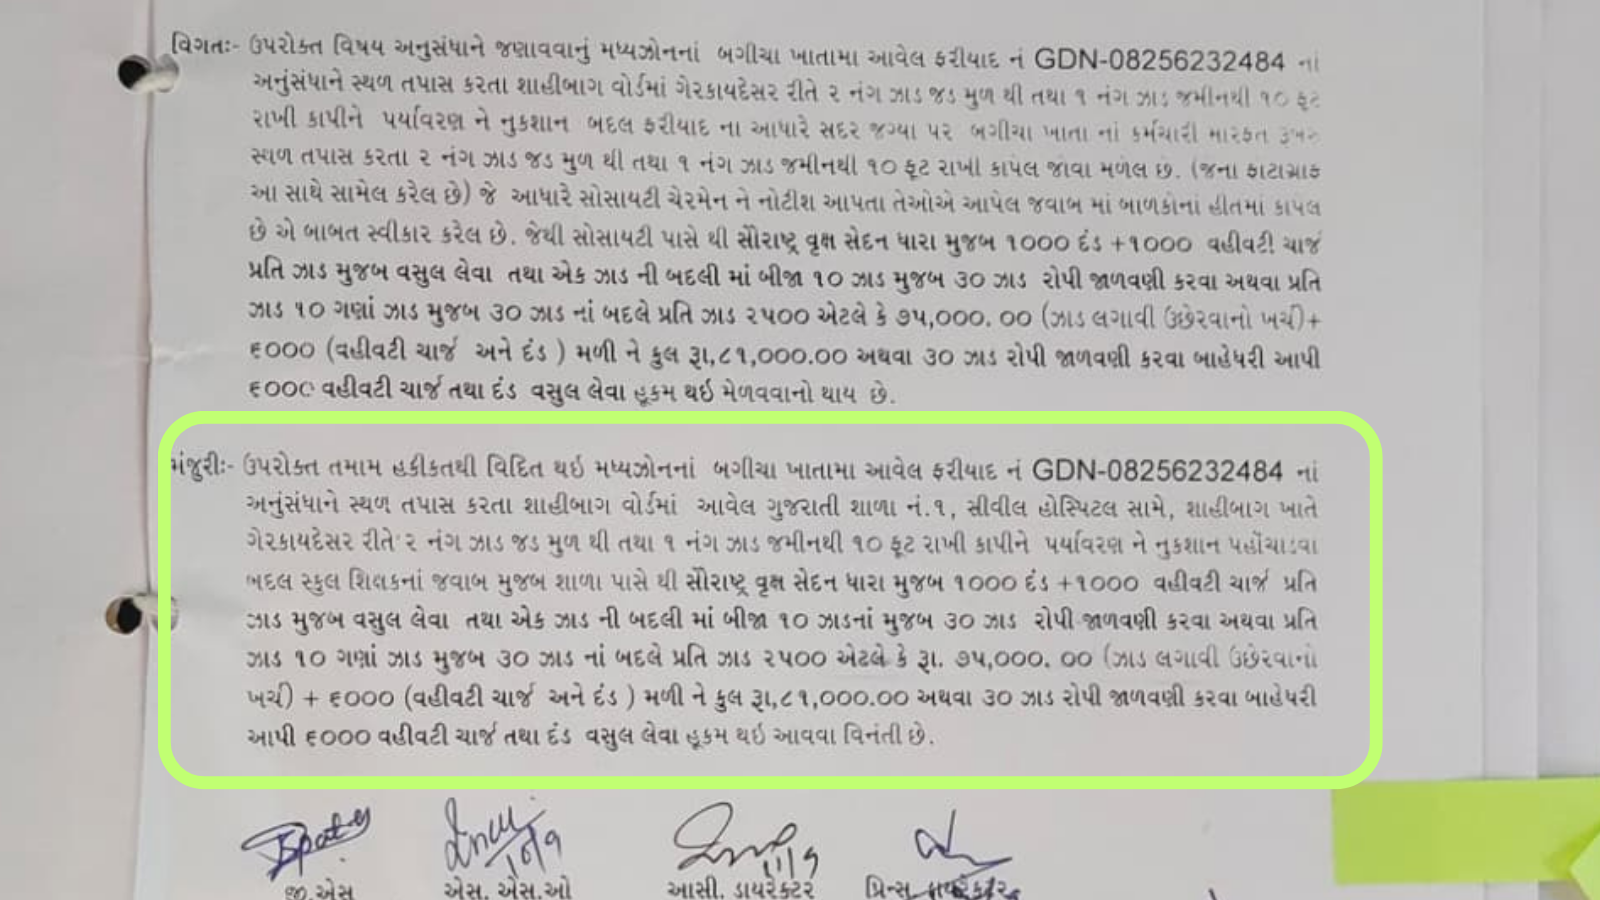 વિગતઃ- ઉપરોક્ત વિષય અનુસંધાને જણાવવાનું મધ્યઝોનનાં બગીચા ખાતામા આવેલ ફરીયાદ નં GDN-08256232484 નાં
અનુંસંધાને સ્થળ તપાસ કરતા શાહીબાગ વોર્ડમાં ગેરકાયદેસર રીતે ૨ નંગ ઝાડ જડ મુળ થી તથા ૧ નંગ ઝાડ જમીનથી ૧૦ ફૂટ
રાખી કાપીને પર્યાવરણ ને નુકશાન બદલ ફરીયાદ ના આધારે સદર જગ્યા પર બગીચા ખાતા નાં કર્મચારી મારફત
સ્થળ તપાસ કરતા ૨ નંગ ઝાડ જડ મુળ થી તથા ૧ નંગ ઝાડ જમીનથી ૧૦ ફૂટ રાખી કાપેલ જોવા મળેલ છે. (જેના ફોટાગ્રાફ
આ સાથે સામેલ કરેલ છે) જે આધારે સોસાયટી ચેરમેન ને નોટીશ આપતા તેઓએ આપેલ જવાબ માં બાળકોનાં હીતમાં કાપેલ
છે એ બાબત સ્વીકાર કરેલ છે. જેથી સોસાયટી પાસે થી સૌરાષ્ટ્ર વૃક્ષ સેદન ધારા મુજબ ૧૦૦૦ દંડ +૧૦૦૦ વહીવટી ચાર્જ
પ્રતિ ઝાડ મુજબ વસુલ લેવા તથા એક ઝાડ ની બદલી માં બીજા ૧૦ ઝાડ મુજબ ૩૦ ઝાડ રોપી જાળવણી કરવા અથવા પ્રતિ
ઝાડ ૧૦ ગણાં ઝાડ મુજબ ૩૦ ઝાડ નાં બદલે પ્રતિ ઝાડ ૨૫૦૦ એટલે કે ૭૫,૦૦૦. ૦૦ (ઝાડ લગાવી ઉછેરવાનો ખર્ચ)+
૬૦૦૦ (વહીવટી ચાર્જ અને દંડ ) મળી ને કુલ રૂા,૮૧,૦૦૦.૦૦ અથવા ૩૦ ઝાડ રોપી જાળવણી કરવા બાહેધરી આપી
૬૦૦૦ વહીવટી ચાર્જ તથા દંડ વસુલ લેવા હૂકમ થઇ મેળવવાનો થાય છે.
મંજુરીઃ- ઉપરોક્ત તમામ હકીકતથી વિદિત થઇ મધ્યઝોનનાં બગીચા ખાતામા આવેલ ફરીયાદ નં GDN-08256232484 નાં
અનુંસંધાને સ્થળ તપાસ કરતા શાહીબાગ વોર્ડમાં આવેલ ગુજરાતી શાળા નં.૧, સીવીલ હોસ્પિટલ સામે, શાહીબાગ ખાતે
ગેરકાયદેસર રીતે ૨ નંગ ઝાડ જડ મુળ થી તથા ૧ નંગ ઝાડ જમીનથી ૧૦ ફૂટ રાખી કાપીને પર્યાવરણ ને નુકશાન પહોંચાડવા
બદલ સ્કુલ શિક્ષકનાં જવાબ મુજબ શાળા પાસે થી સૌરાષ્ટ્ર વૃક્ષ સેદન ધારા મુજબ ૧૦૦૦ દંડ +૧૦૦૦ વહીવટી ચાર્જ પ્રતિ
ઝાડ મુજબ વસુલ લેવા તથા એક ઝાડ ની બદલી માં બીજા ૧૦ ઝાડનાં મુજબ ૩૦ ઝાડ રોપી જાળવણી કરવા અથવા પ્રતિ
ઝાડ ૧૦ ગણાં ઝાડ મુજબ ૩૦ ઝાડ નાં બદલે પ્રતિ ઝાડ ૨૫૦૦ એટલે કે રૂા. ૭૫,૦૦૦. ૦૦ (ઝાડ લગાવી ઉછેરવાનો
ખર્ચ) + ૬૦૦૦ (વહીવટી ચાર્જ અને દંડ ) મળી ને કુલ રૂા,૮૧,૦૦૦.૦૦ અથવા ૩૦ ઝાડ રોપી જાળવણી કરવા બાહેધરી
આપી ૬૦૦૦ વહીવટી ચાર્જ તથા દંડ વસુલ લેવા હૂકમ થઇ આવવા વિનંતી છે.
૧૦/૧ ૧૧/૧
જી.એસ એસ. એસ.ઓ આસી. ડાયરેક્ટર પ્રિન્સ. ડાયરેક્ટર